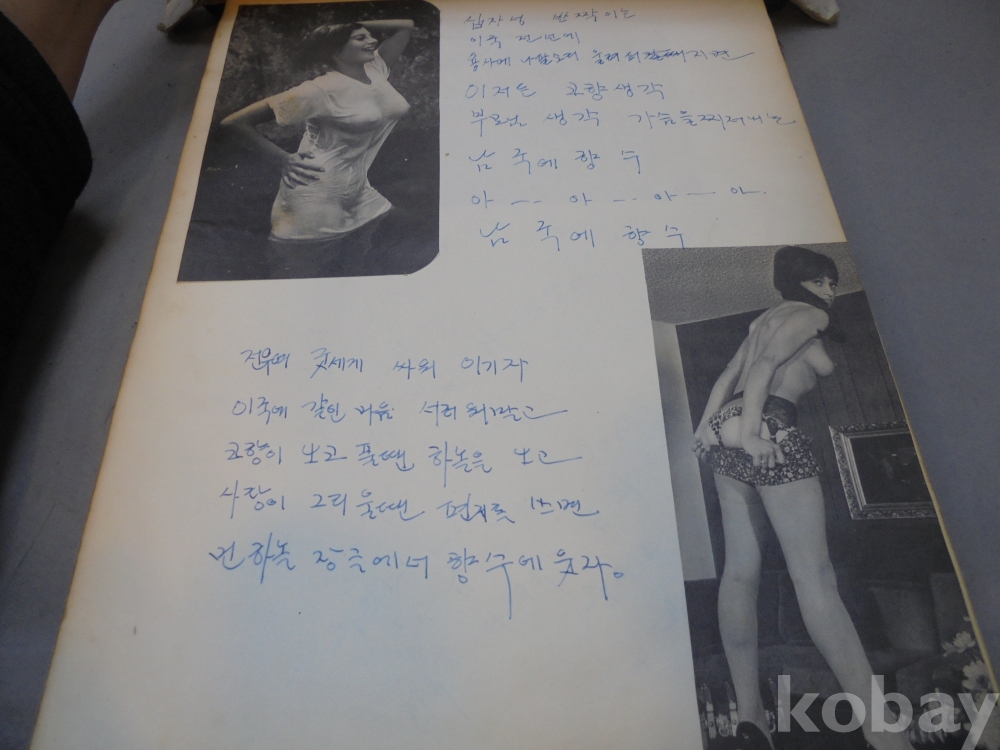 십자성 반짝이는
이국 전선에
용사에 나팔소리 울려 퍼질때지면
이저는 고향생각
부모님 생각 가슴을 찌저내는
남국에 향수
아 -- 아 -- 아 — 아
남국에 향수
전우여 굿세게 싸워 이기자
이국에 갈인 마음 서러워말고
고향이 보고 풀땐 하늘을 보고
사랑이 그리울땐 편지를 쓰면
먼 하늘 장글에서 향수에 웃자。
kobay